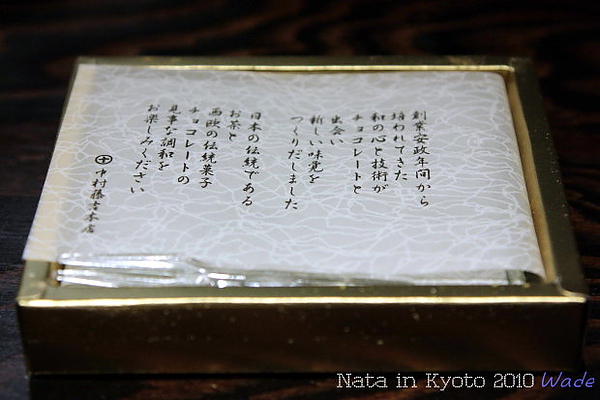 創業安政年間から
培われてきた
和の心と技術が
チョコレートと
出会い
新しい味覚を
つくりだしました
日本の伝統である
お茶と
西欧の伝統菓子
チョコレートの
見事な調和を
お楽しみください
中村藤吉本店
Nata in Kyoto 2010 Wade